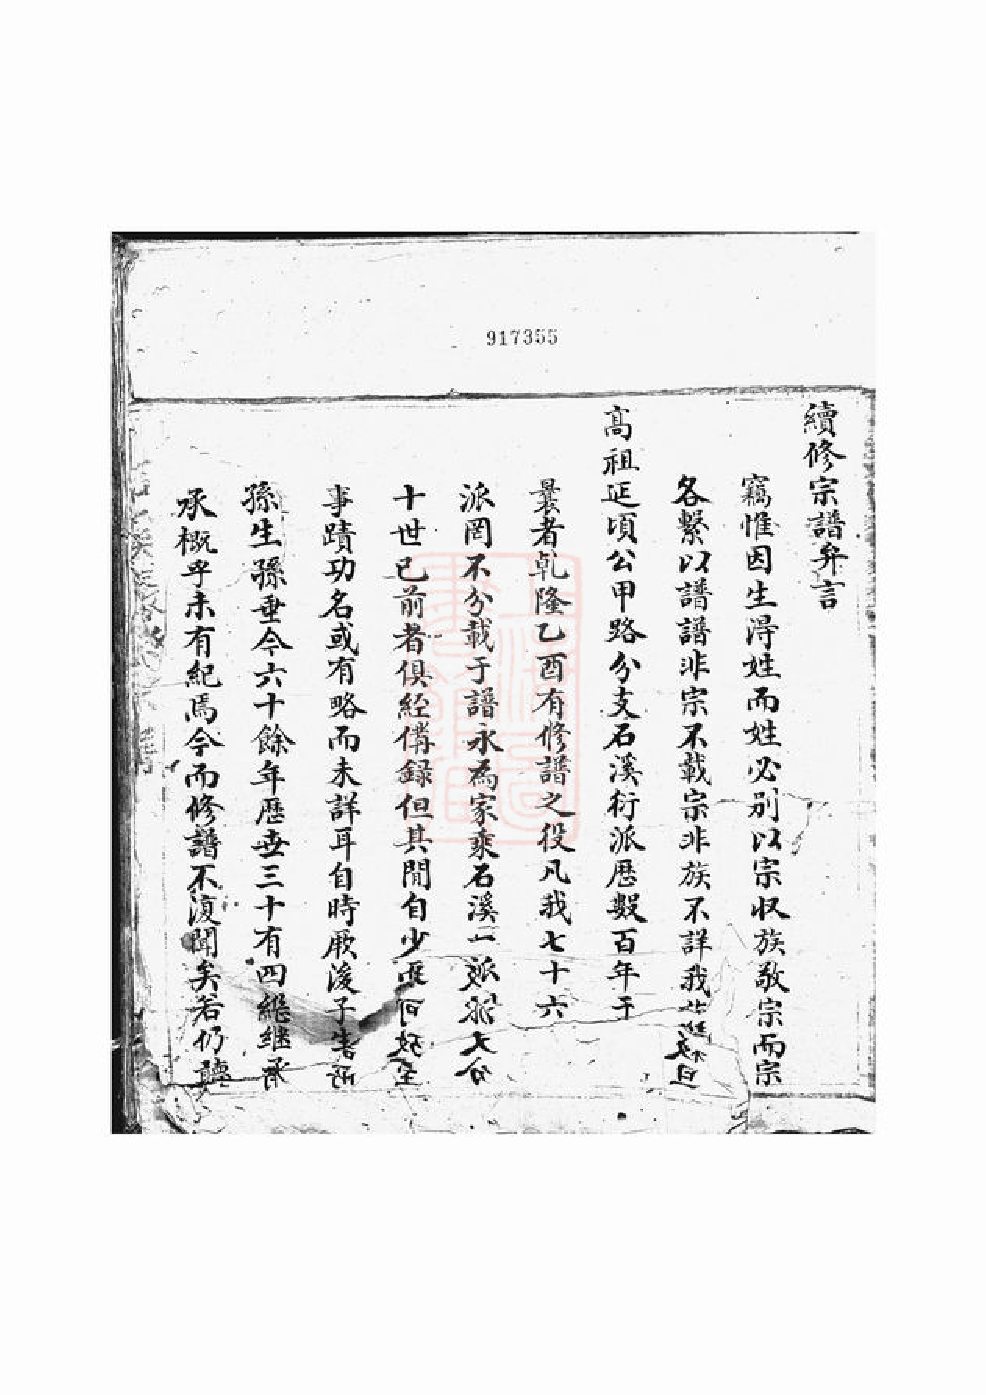 917355
續修宗譜弁言
竊惟因生淂姓而姓必別以宗収族敬宗而宗
各繫以譜譜非宗不載宗非族不詳我
髙祖延頃公甲路分支石溪衍派歷數百年于
曩者乹隆乙酉有修譜之役凡我七十六
派罔不分載于譜永為家乘石溪一派
十世已前者俱經俻録但其間自少
事蹟功名或有略而未詳耳自時厥後子
孫生孫垂今六十餘年歷世三十有四繼継承
承概乎未有紀焉今而修譜不復聞矣若仍聽